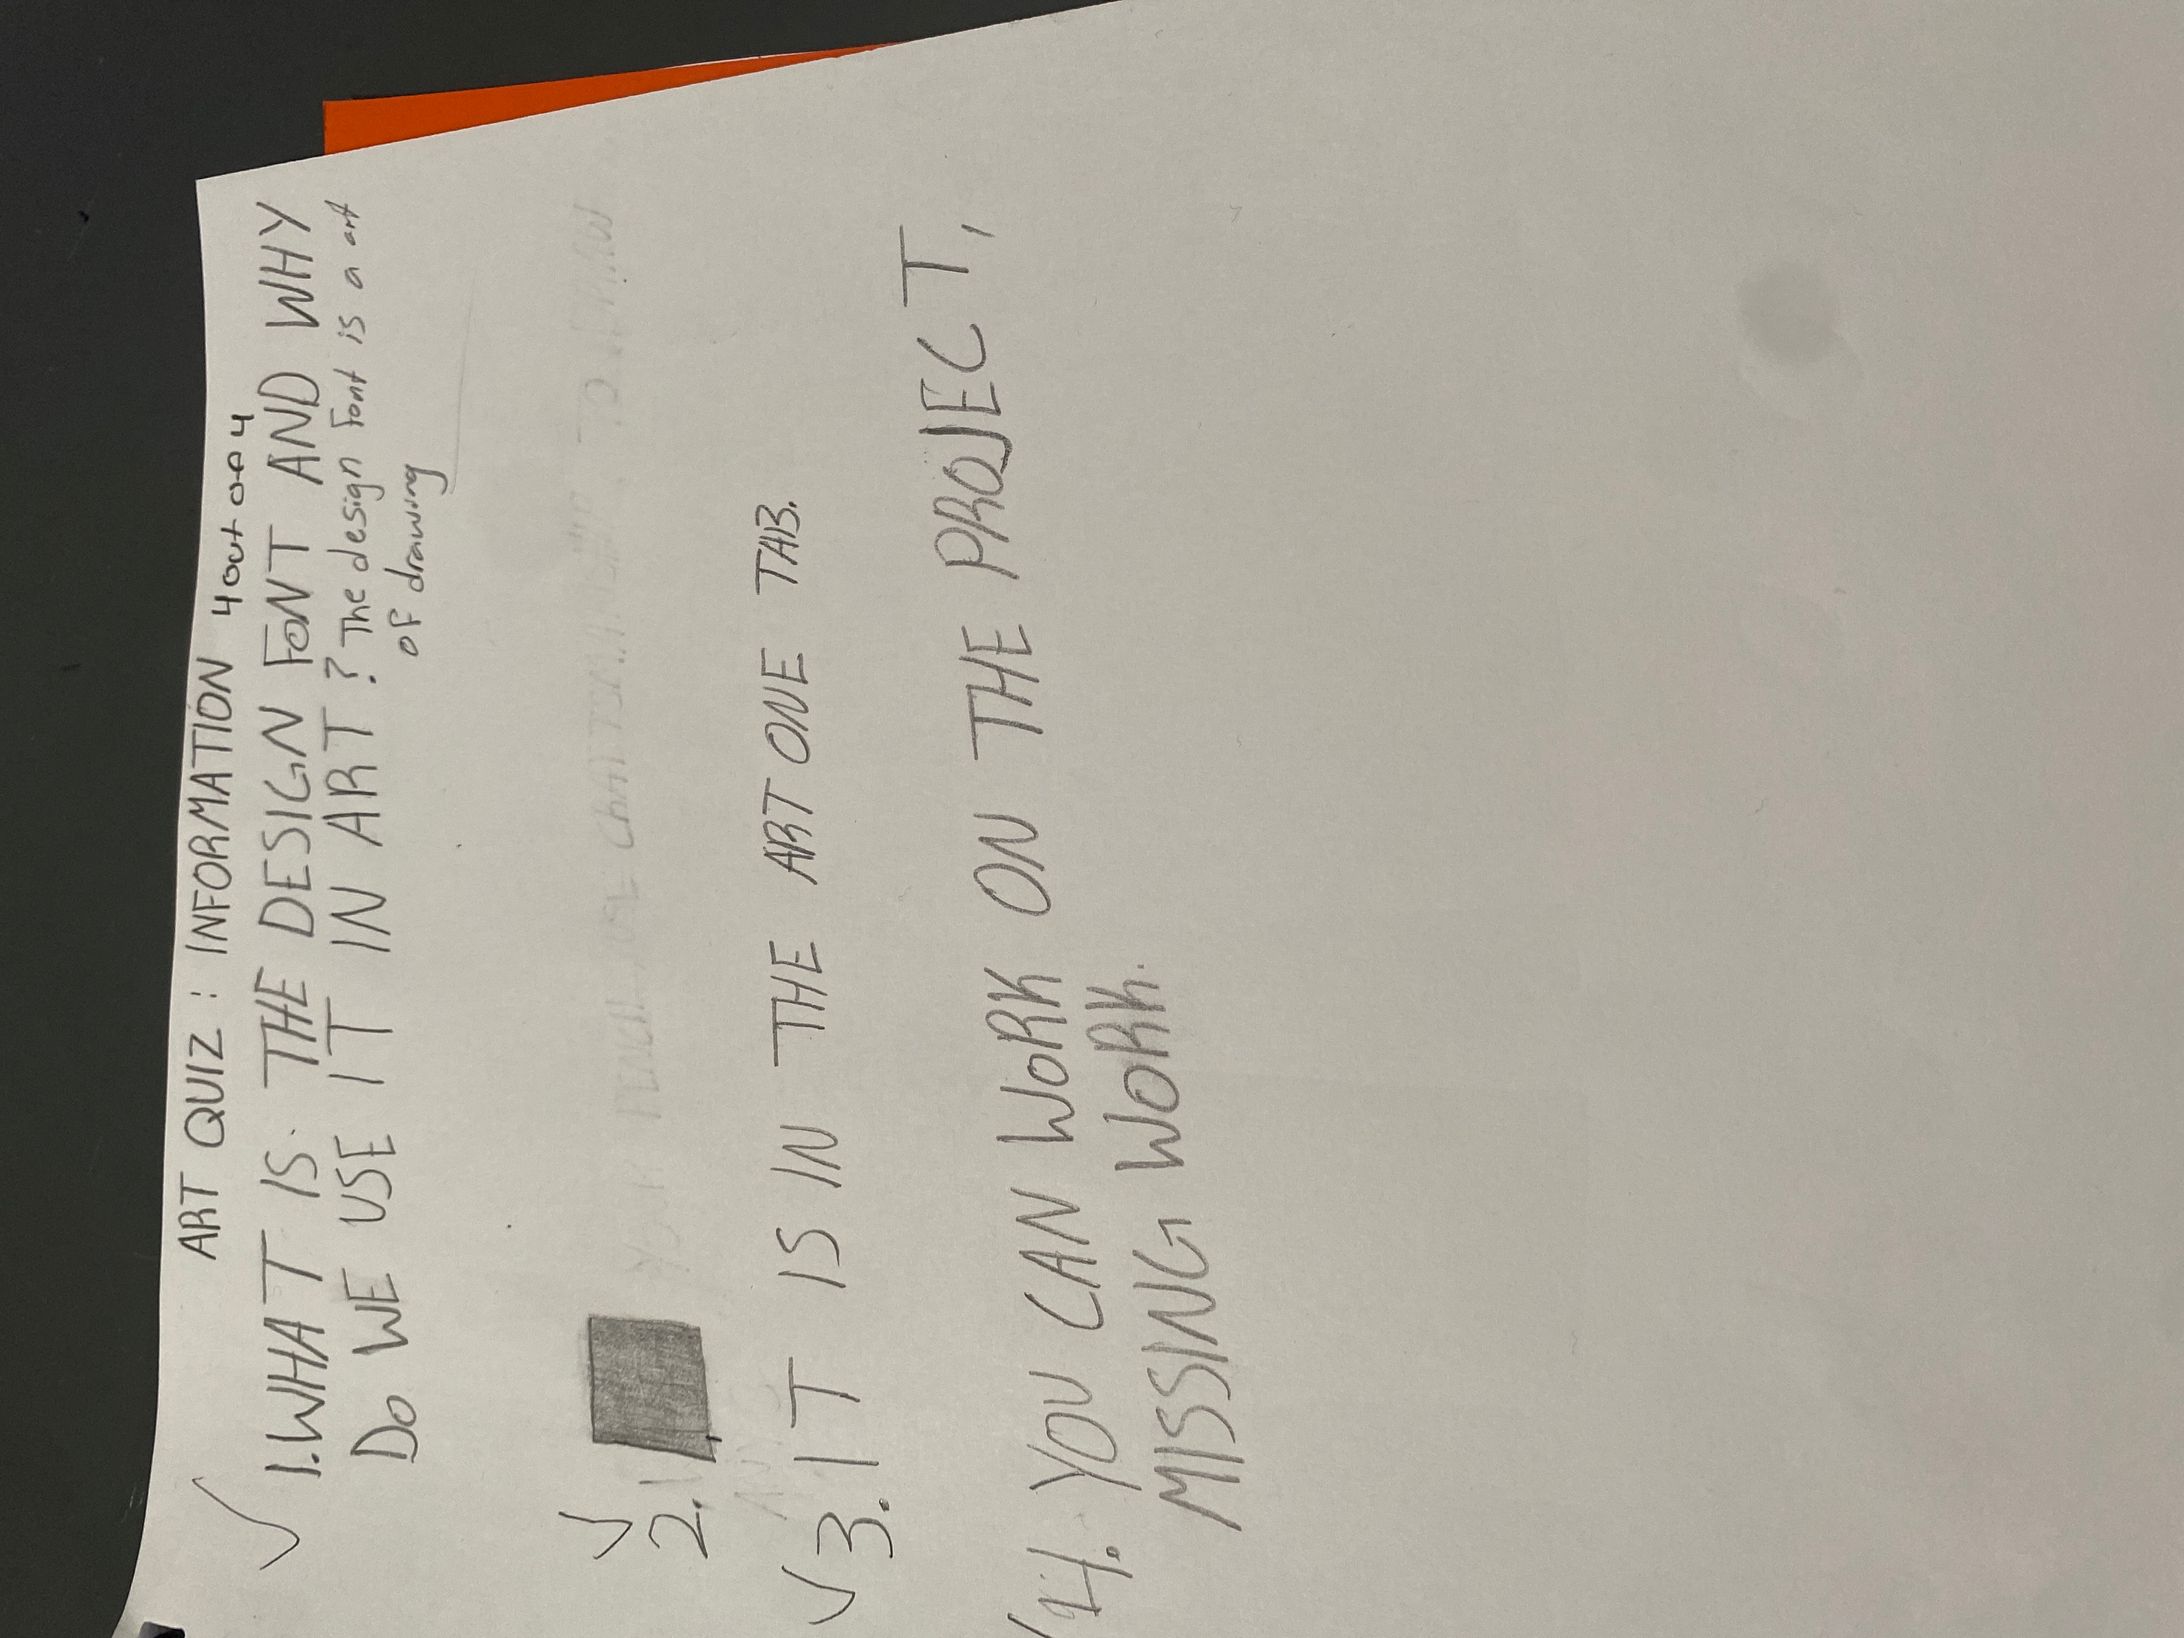 ART QUIZ: INFORMATION 4 out of 4
1. WHAT IS THE DESIGN FONT AND WHY
DO WE USE IT IN ART? The design font is a art
of drawing
2.
3. IT IS IN THE ART ONE TAB.
4. YOU CAN WORK ON THE PROJECT,
MISSING WORK.